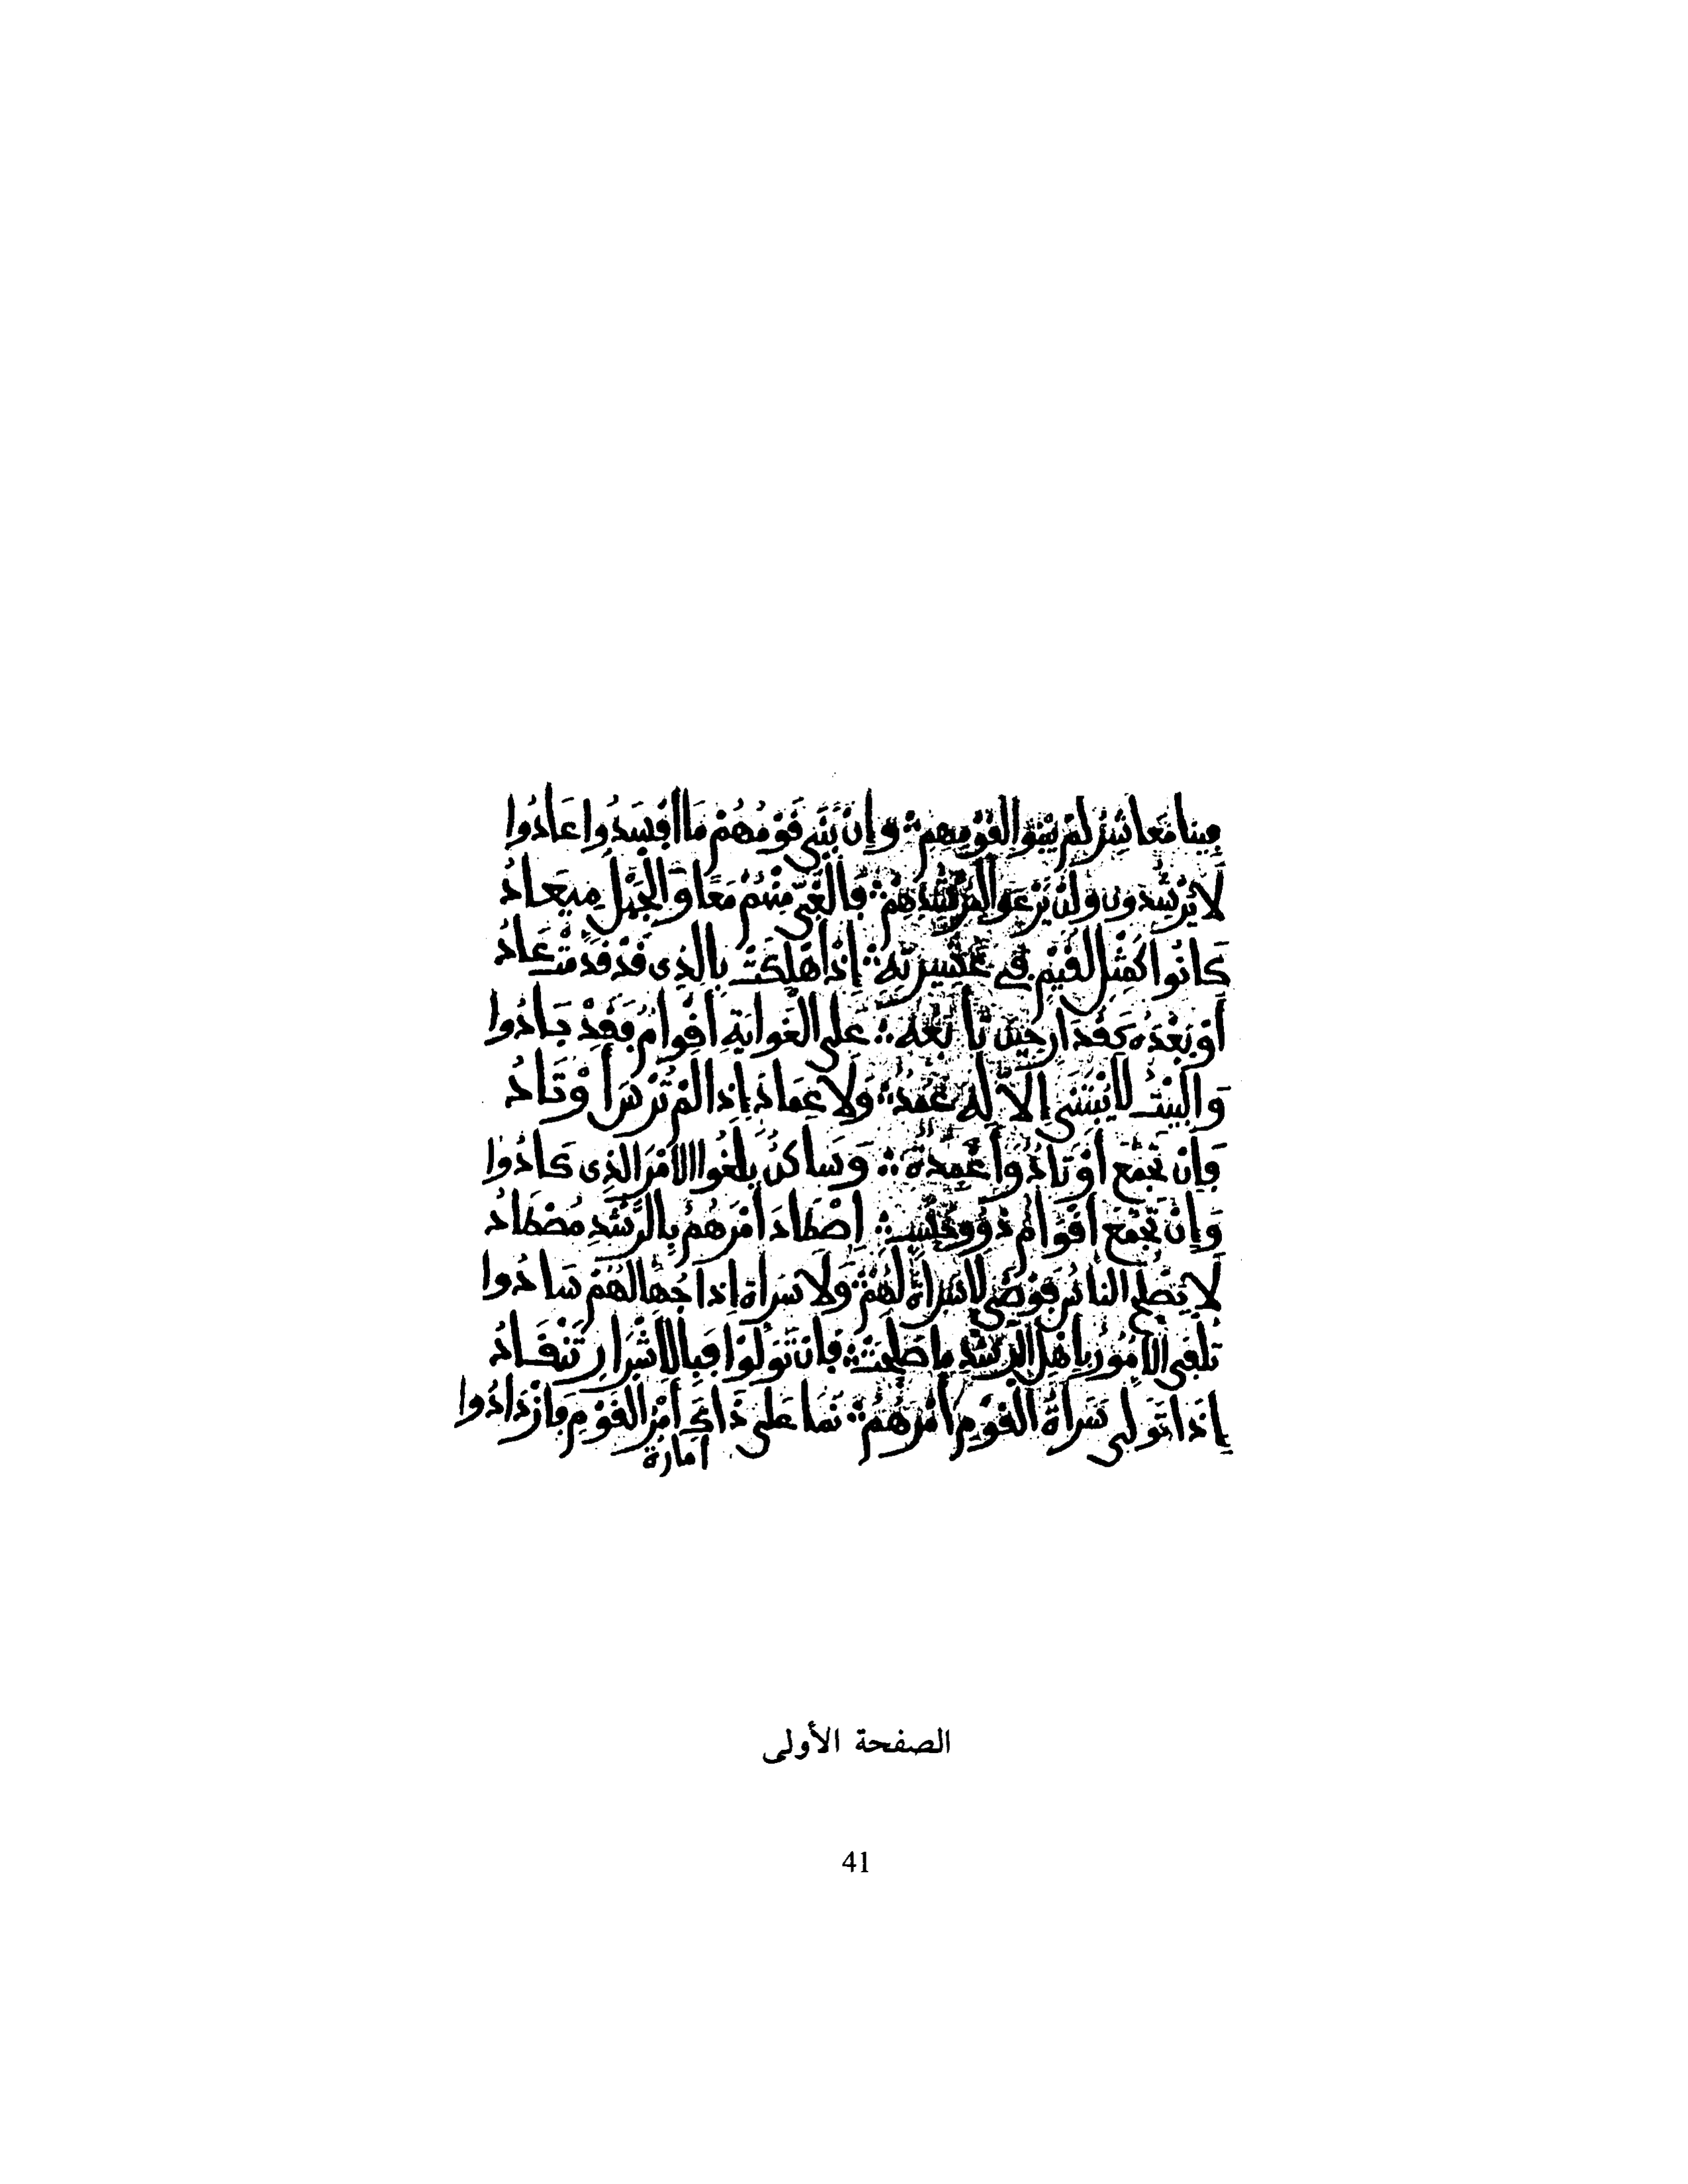 فِينَا مَعَاشِرُ لَمْ يَبْنُوا لِقَوْمِهِمْ ∴ وَإِنْ بَنَى قَوْمُهُمْ مَا أَفْسَدُوا عَادُوا
لَا يَرْشُدُونَ وَلَنْ يَرْعَوْا لِمُرْشِدِهِمْ ∴ فَالْغَيُّ مِنْهُمْ مَعًا وَالْجَهْلُ مِيعَادُ
كَانُوا كَمِثْلِ لُقَيْمٍ فِي عَشِيرَتِهِ ∴ إِذْ أُهْلِكَتْ بِالَّذِي قَدْ قَدَّمَتْ عَادُ
أَوْ بَعْدَهُ كَقُدَارٍ حِينَ تَابَعَهُ ∴ عَلَى الْغَوَايَةِ أَقْوَامٌ فَقَدْ بَادُوا
وَالْبَيْتُ لَا يُبْتَنَى إِلَّا لَهُ عَمَدٌ ∴ وَلَا عِمَادَ إِذَا لَمْ تُرْسَ أَوْتَادُ
فَإِنْ تَجَمَّعَ أَوْتَادٌ وَأَعْمِدَةٌ ∴ وَسَاكِنٌ بَلَغُوا الْأَمْرَ الَّذِي كَادُوا
وَإِنْ تَجَمَّعَ أَقْوَامٌ ذَوُو حَسَبٍ ∴ اصْطَادَ أَمْرَهُمُ بِالرُّشْدِ مُصْطَادُ
لَا يَصْلُحُ النَّاسُ فَوْضَى لَا سَرَاةَ لَهُمْ ∴ وَلَا سَرَاةَ إِذَا جُهَّالُهُمْ سَادُوا
تُلْفَى الْأُمُورُ بِأَهْلِ الرُّشْدِ مَا صَلَحَتْ ∴ فَإِنْ تَوَلَّوْا فَبِالْأَشْرَارِ تَنْقَادُ
إِذَا تَوَلَّى سَرَاةُ الْقَوْمِ أَمْرَهُمُ ∴ نَمَا عَلَى ذَاكَ أَمْرُ الْقَوْمِ فَازْدَادُوا
أمارة
الصفحة الأولى
41